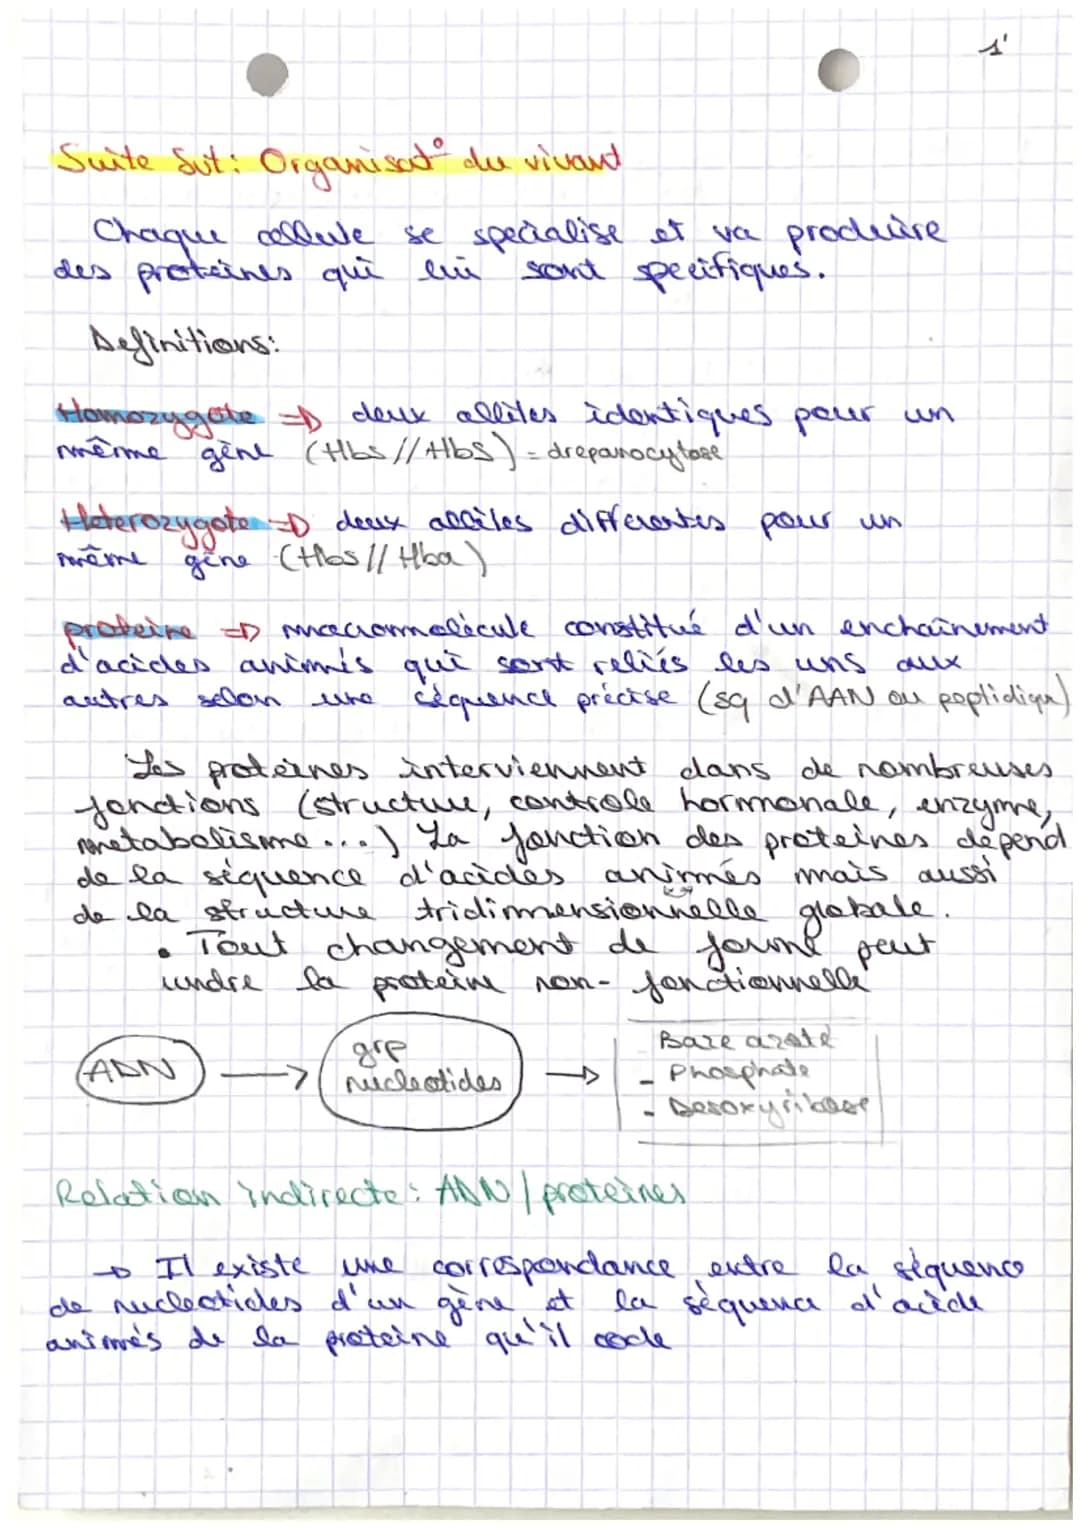 1'
Suite Svt: Organisat° du vivant
Chaque cellule se specialise et va produire
des proteines qui lui sont specifiques.
Definitions:
Homozygote => deux allèles identiques pour un
même gène (Hbs // HbS) = drepanocytose
Heterozygote => deux allèles differentes pour un
même gène (Hbs // Hba)
proteine => macromolécule constitué d'un enchaînement
d'acides animés qui sont reliés les uns aux
autres selon une séquence précise (sq d'AAN ou peptidique)
Les proteines interviennent dans de nombreuses
fonctions (structure, controle hormonale, enzyme,
metabolisme...) La fonction des proteines dépend
de la séquence d'acides animés mais aussi
de la structure tridimensionnelle globale.
• Tout changement de forme peut
rendre la proteine non-fonctionnelle
ADN → grp nucleotides → Base azoté
- Phosphate
- Desoxyribose
Relation indirecte: ADN / proteines
→ Il existe une correspondance entre la séquence
de nucleotides d'un gène et la séquence d'acide
animés de la proteine qu'il code